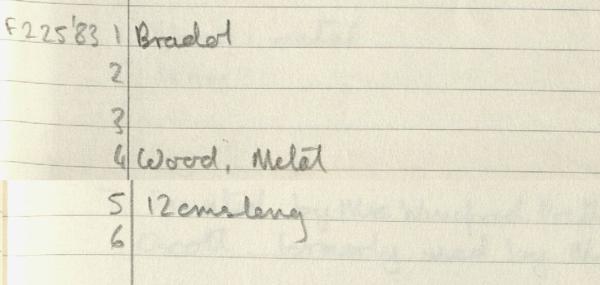 F225'83 1 Bradol
2
3
4 Wood, Metal
5 12cms long
6